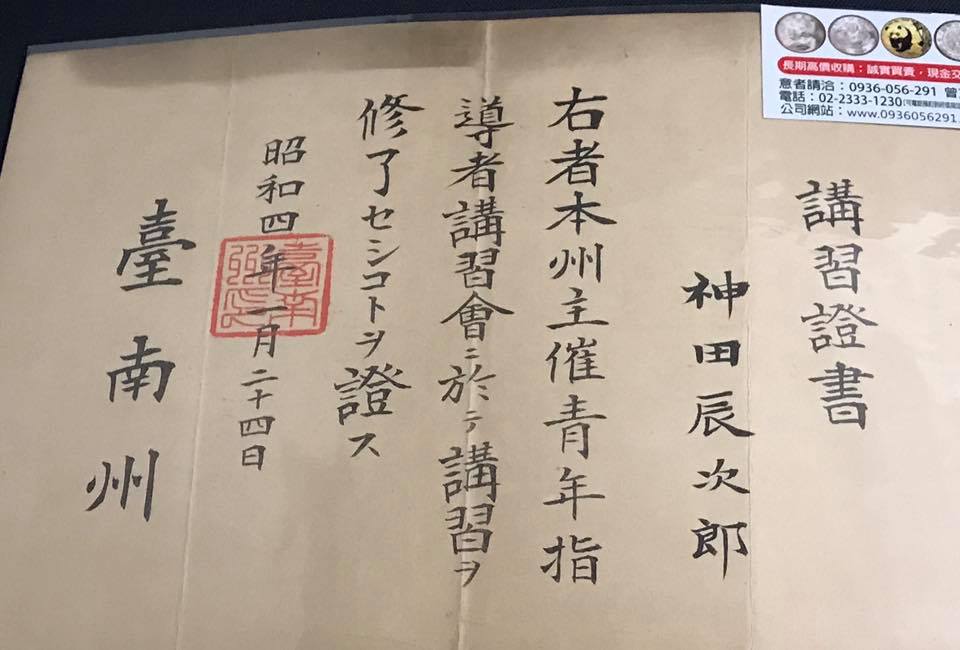 講習證書
神田辰次郎
右者本州主催青年指
導者講習會ニ於テ講習ヲ
修了セシコトヲ證ス
昭和四年一月二十四日
臺南州
長期高價收購：誠實買賣，現金交
意者請洽：0936-056-291 曾
電話：02-2333-1230
公司網站：www.0936056291.